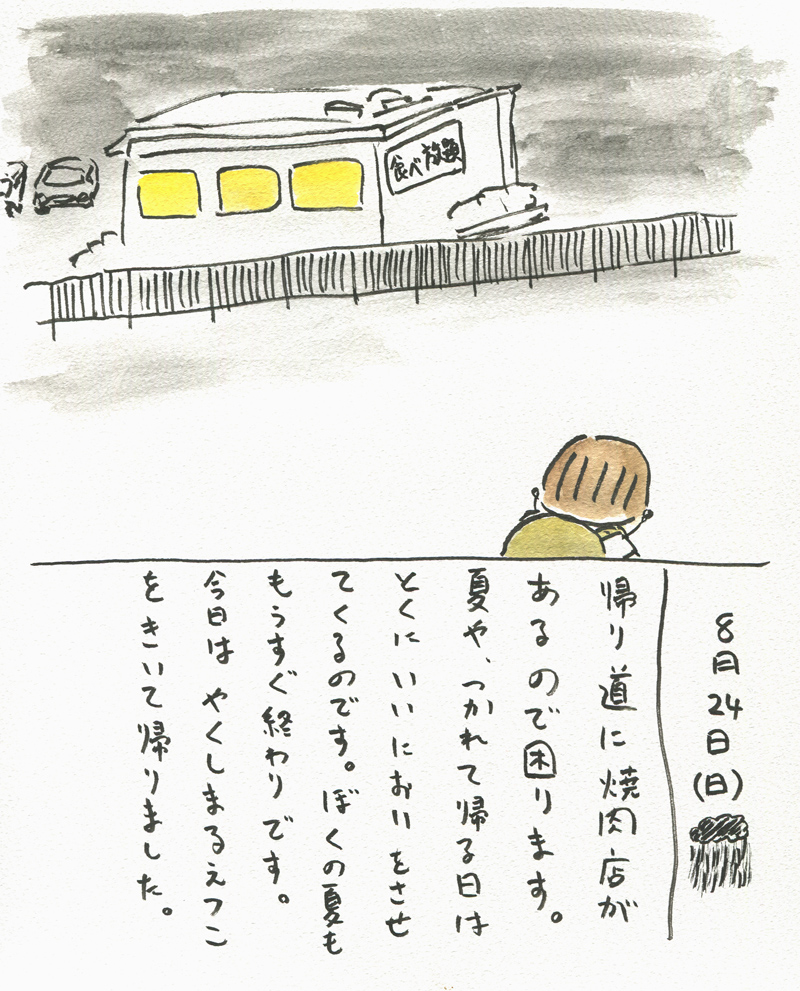 食べ放題
8月24日(日)
帰り道に焼肉店が
あるので困ります。
夏や、つかれて帰る日は
とくにいいにおいをさせ
てくるのです。ぼくの夏も
もうすぐ終わりです。
今日はやくしまるえつこ
をきいて帰りました。